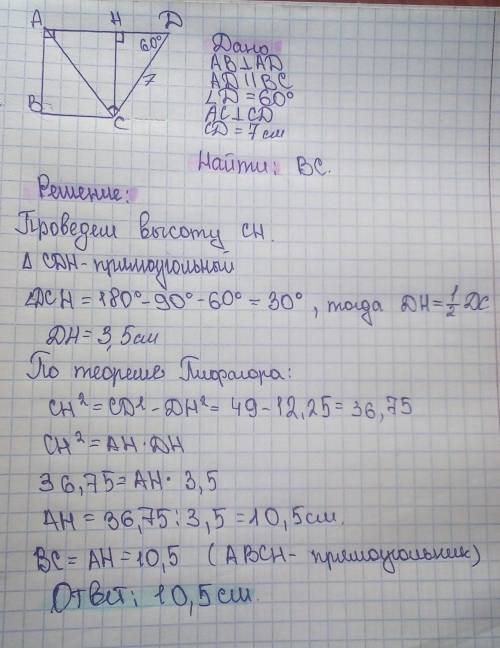 A H D
60°
7
B
C
Дано
AB⊥AD
AD || BC
∠D = 60°
AC⊥CD
CD = 7 см
Найти: BC.
Решение:
Проведем высоту CH.
Δ CDH - прямоугольный
∠DCH = 180° - 90° - 60° = 30°, тогда DH = 1/2 DC
DH = 3,5 см
По теореме Пифагора:
CH² = CD² - DH² = 49 - 12,25 = 36,75
CH² = AH · DH
36,75 = AH · 3,5
AH = 36,75 : 3,5 = 10,5 см.
BC = AH = 10,5 (ABCH - прямоугольник)
Ответ: 10,5 см.